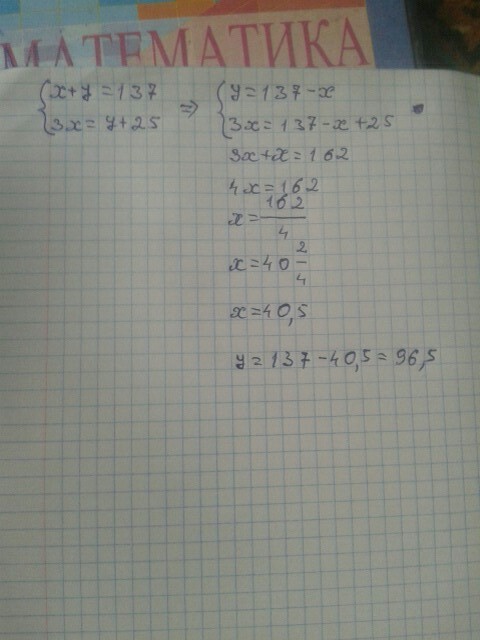 МАТЕМАТИКА
{ x+y=137 => { y=137-x
{ 3x=y+25 { 3x=137-x+25
3x+x=162
4x=162
x=162/4
x=40 2/4
x=40,5
y=137-40,5=96,5